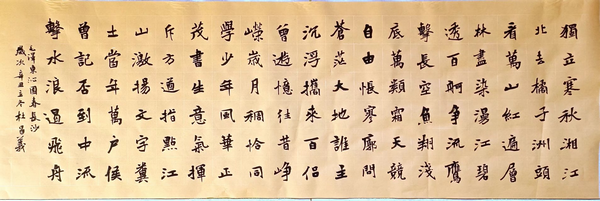 獨立寒秋湘江
北去橘子洲頭
看萬山紅遍層
林盡染漫江碧
透百舸争流鷹
擊長空魚翔淺
底萬類霜天競
自由悵寥廓問
蒼茫大地誰主
沉浮攜來百侶
曾遊憶往昔崢
嶸歲月稠恰同
學少年風華正
茂書生意氣揮
斥方遒指點江
山激揚文字糞
土當年萬户侯
曾記否到中流
擊水浪遏飛舟
毛澤東沁園春長沙
歲次辛丑立冬杜書義